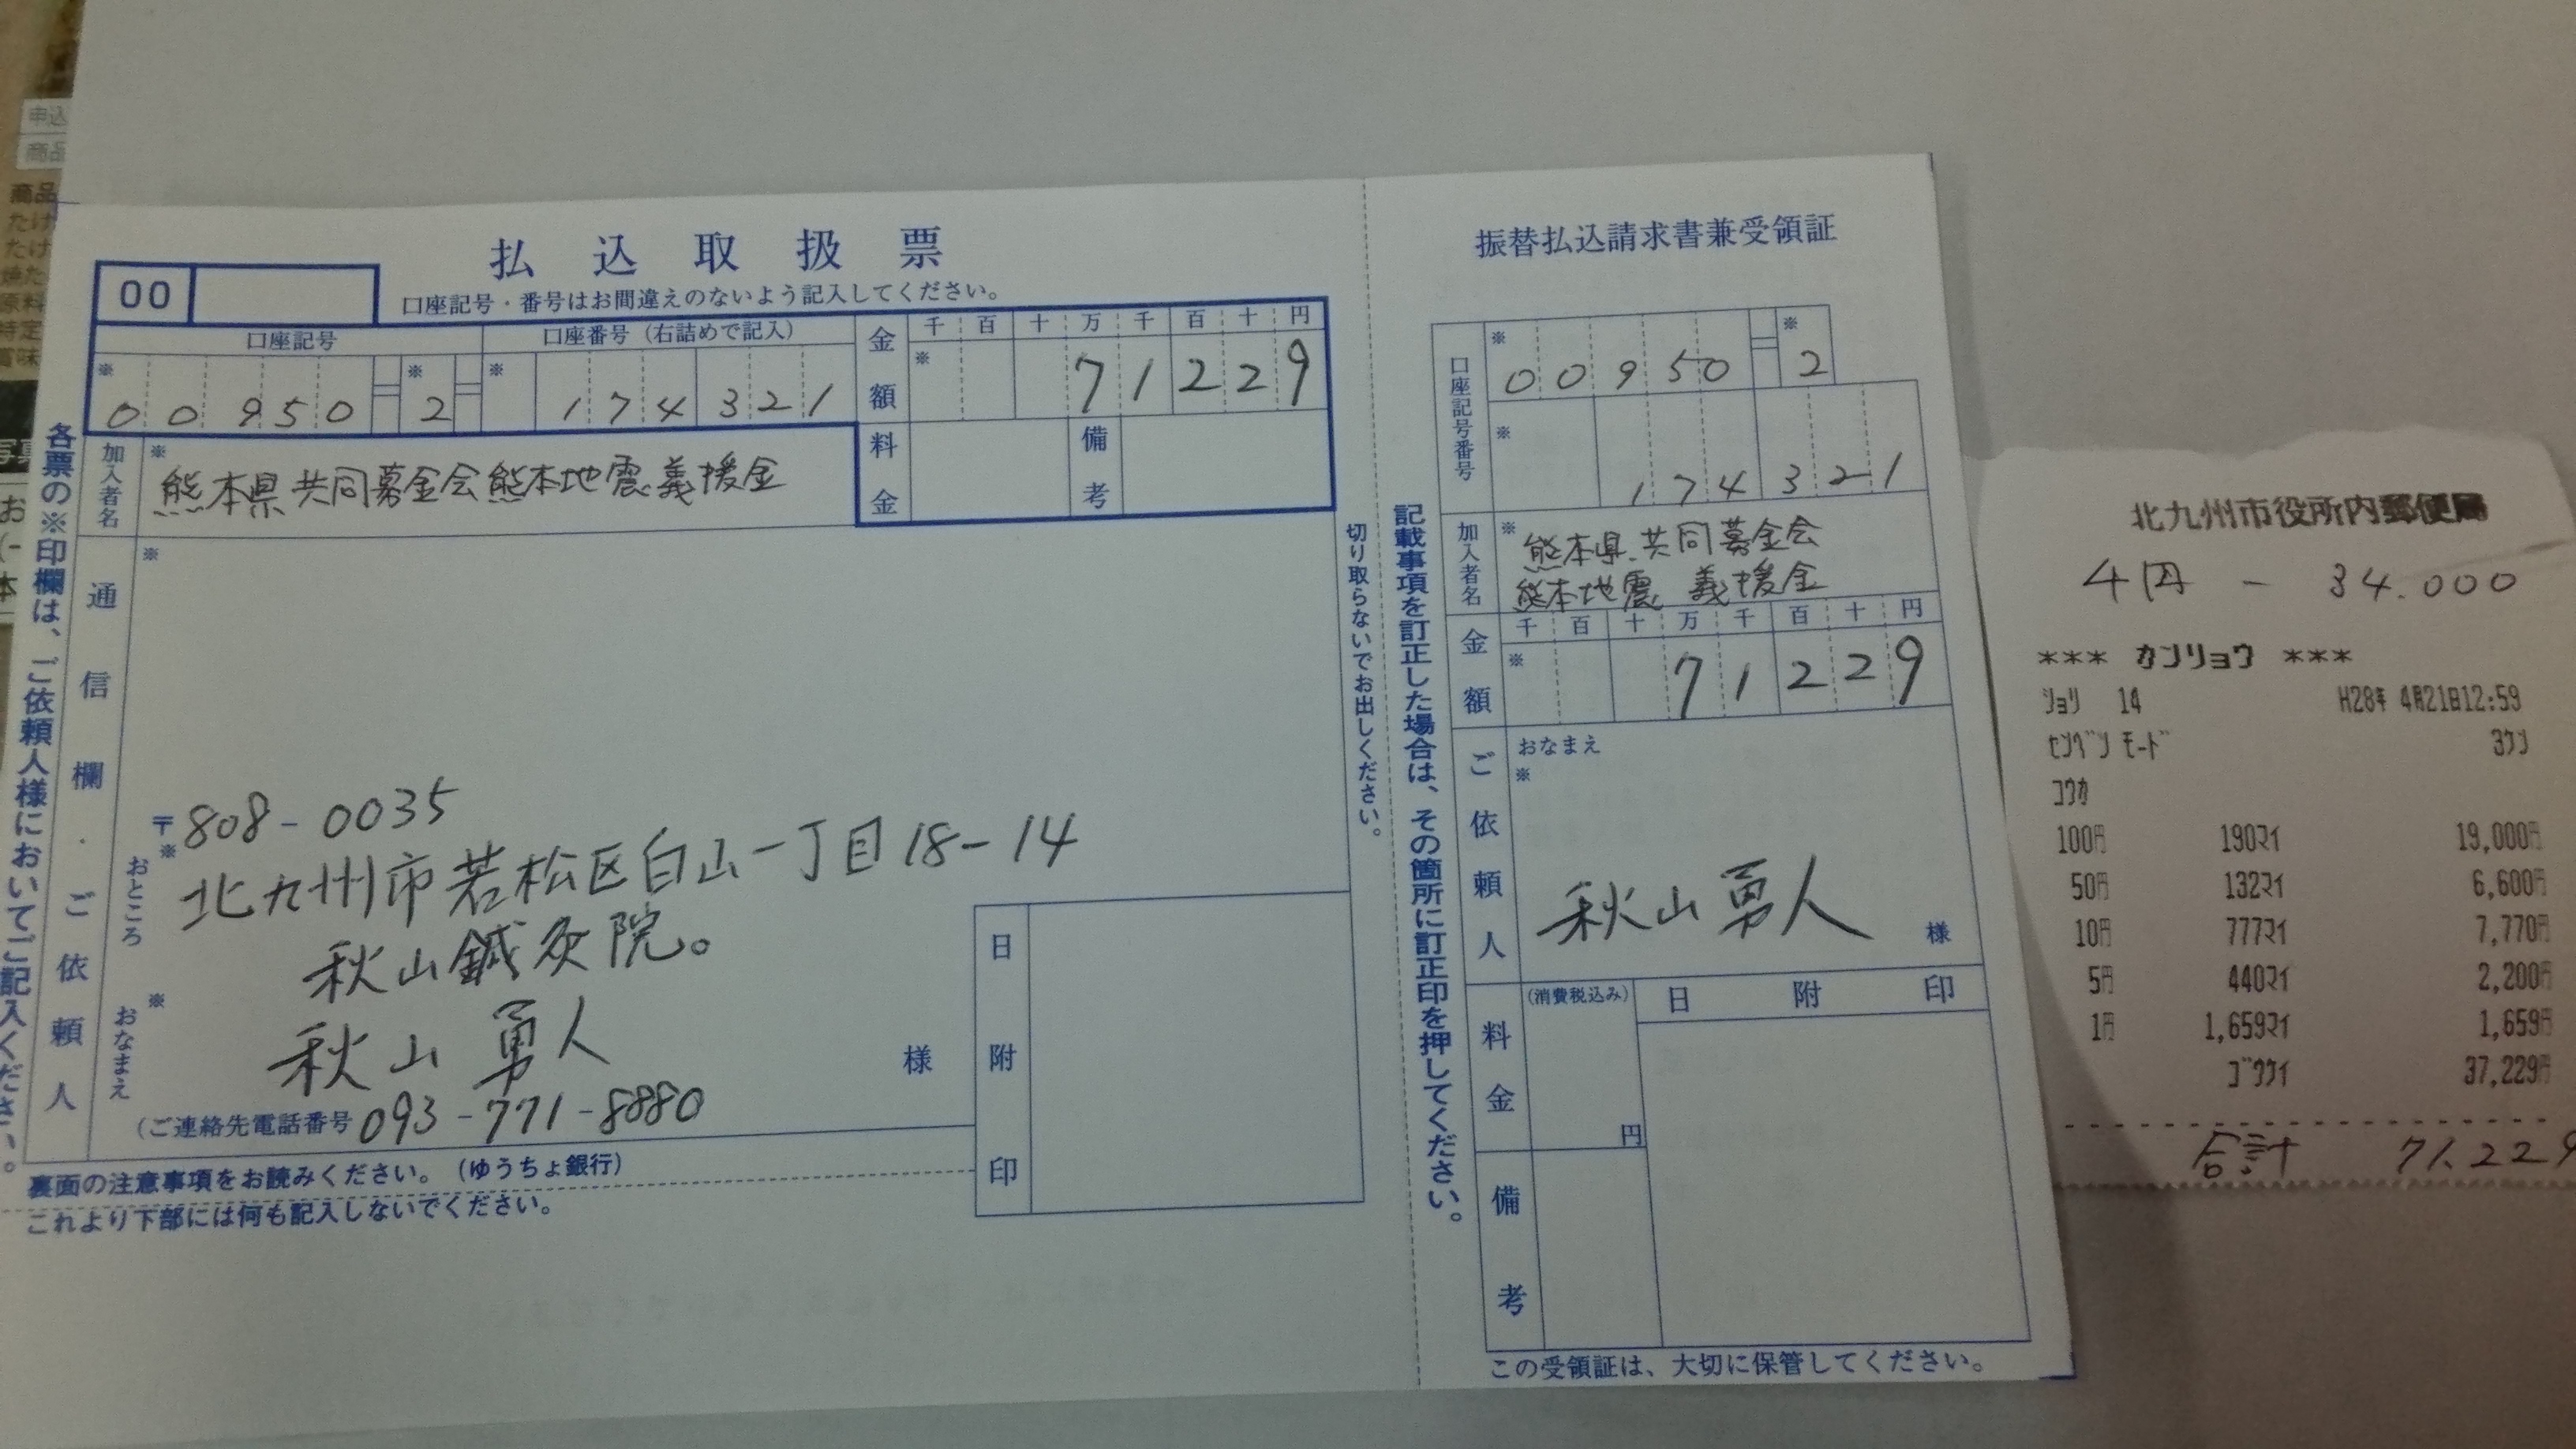 申込
商品
商品
たけ
たけ
焼た
原料
特定
賞味
写真
お
(-
本
払込取扱票
00
口座記号・番号はお間違えのないよう記入してください。
口座記号
口座番号(右詰めで記入)
金額
千百十万千百十円
※00950=※2=※174321
※71229
加入者名
※熊本県共同募金会熊本地震義援金
料金
備考
各票の※印欄は、ご依頼人様においてご記入ください。
通信欄・ご依頼人
※
〒※808-0035
おところ
北九州市若松区白山一丁目18-14
秋山鍼灸院。
おなまえ
※
秋山勇人
様
(ご連絡先電話番号093-771-8880
日附印
裏面の注意事項をお読みください。(ゆうちょ銀行)
これより下部には何も記入しないでください。
切り取らないでお出しください。
記載事項を訂正した場合は、その箇所に訂正印を押してください。
振替払込請求書兼受領証
口座記号番号
※00950=※2
※174321
加入者名
※熊本県共同募金会
熊本地震 義援金
金額
千百十万千百十円
※71229
ご依頼人
おなまえ
※
秋山勇人
様
料金
(消費税込み)
円
日附印
備考
この受領証は、大切に保管してください。
北九州市役所内郵便局
4円 - 34.000
*** カンリョウ ***
ショリ 14 H28年 4月21日12:59
センベツ モード ヨウン
コウカ
100円 190マイ 19,000円
50円 132マイ 6,600円
10円 777マイ 7,770円
5円 440マイ 2,200円
1円 1,659マイ 1,659円
ゴウケイ 37,229円
合計 71.229